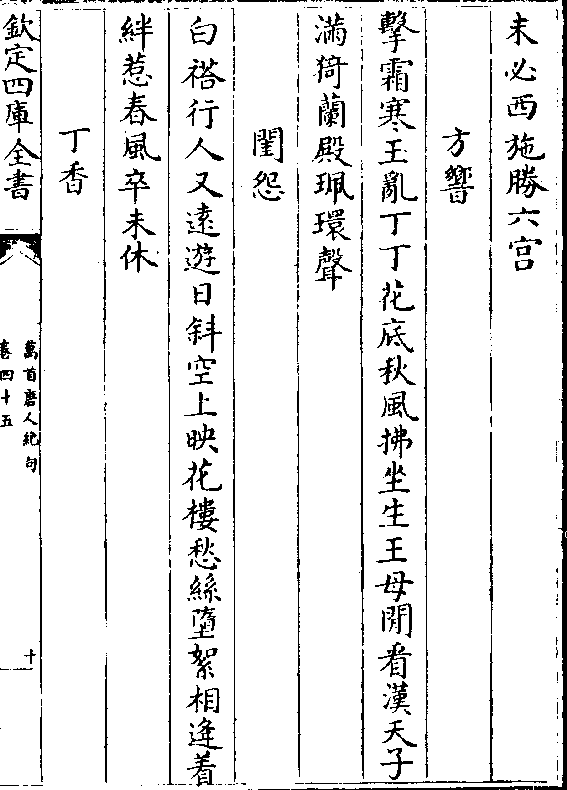 未必西施勝六宫
方響
擊霜寒玉亂丁丁花底秋風拂坐生王母閒看漢天子
滿猗蘭殿珮環聲
閨怨
白褡行人又遠遊日斜空上映花樓愁絲墮絮相逢着
絆惹春風卒未休
丁香
欽定四庫全書
萬首唐人絶句
卷四十五
十